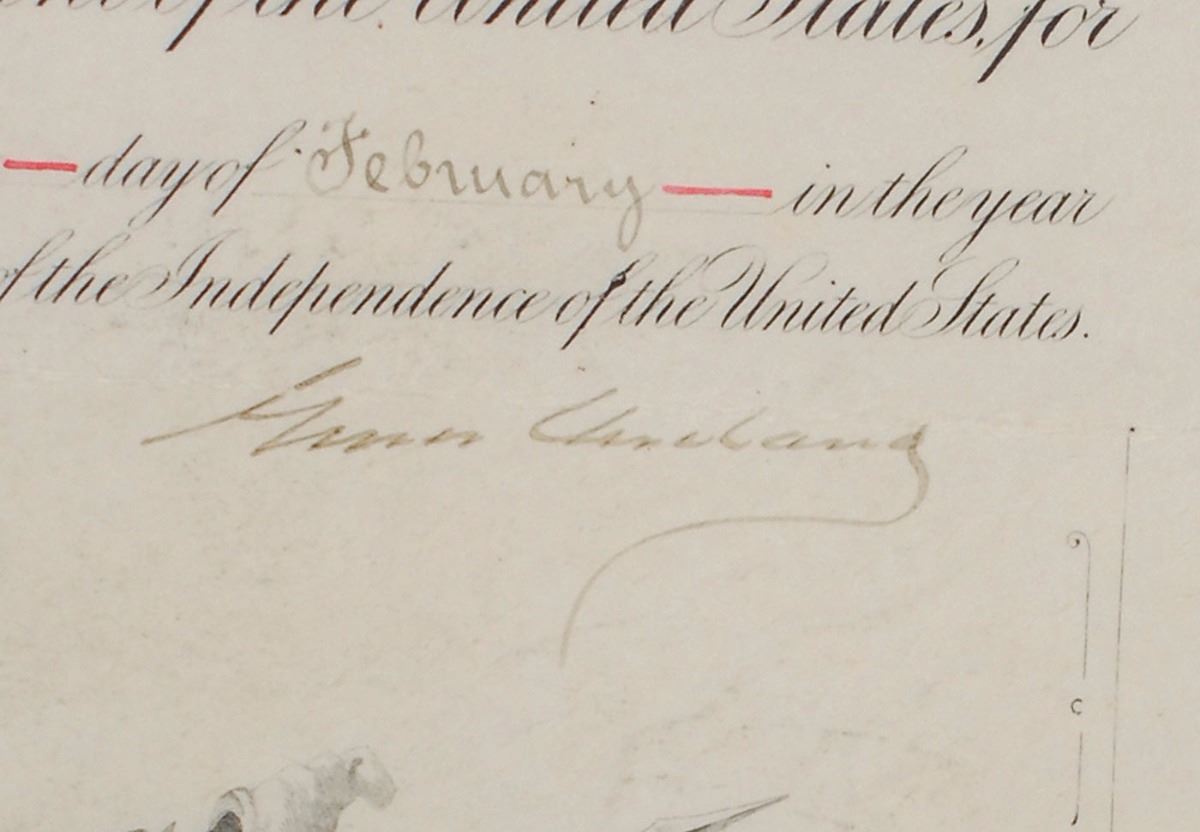 of the United States, for
day of February in the year
of the Independence of the United States.
Grover Cleveland
c